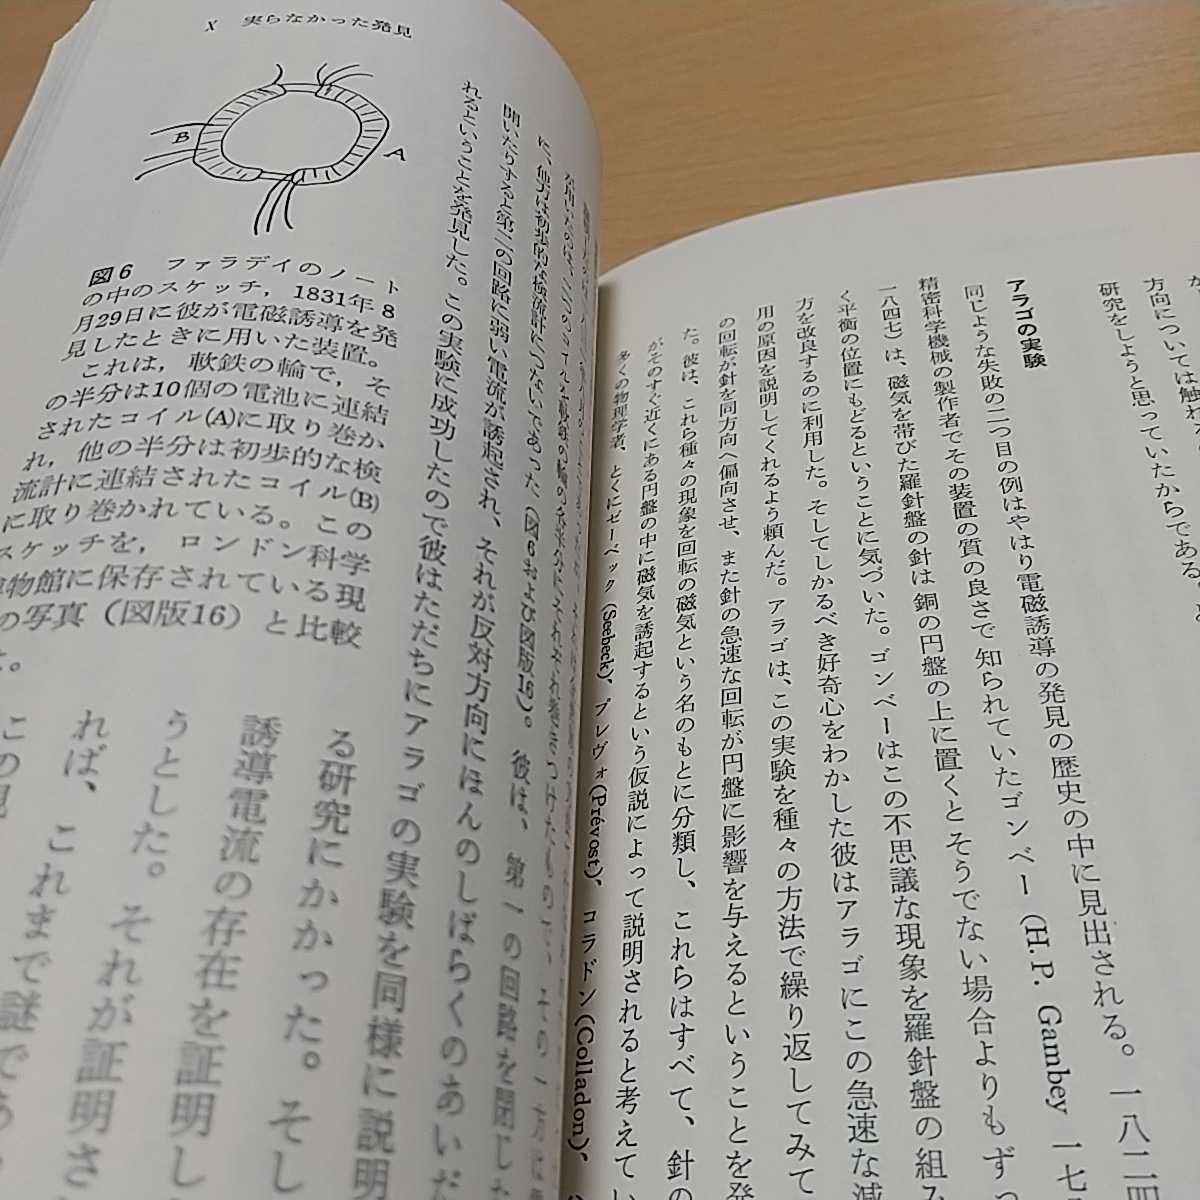 方向については触れ
研究をしようと思っていたからである
アラゴの実験
同じような失敗の二つ目の例はやはり電磁誘導の発見の歴史の中に見出される。一八二四
精密科学機械の製作者でその装置の質の良さで知られていたゴンベー(H. P. Gambey 一七
一八四七)は、磁気を帯びた羅針盤の針は銅の円盤の上に置くとそうでない場合よりもずっ
く平衡の位置にもどるということに気づいた。ゴンベーはこの不思議な現象を羅針盤の組み
方を改良するのに利用した。そしてしかるべき好奇心をわかした彼はアラゴにこの急速な減
用の原因を説明してくれるよう頼んだ。アラゴは、この実験を種々の方法で繰り返してみて
の回転が針を同方向へ偏向させ、また針の急速な回転が円盤に影響を与えるということを発
た。彼は、これら種々の現象を回転の磁気という名のもとに分類し、これらはすべて、針の
がそのすぐ近くにある円盤の中に磁気を誘起するという仮説によって説明されると考えてい
多くの物理学者、とくにゼーベック(Seebeck)、プレヴォ(Prévost)、コラドン(Colladon)、
X 実らなかった発見
B
A
図6 ファラデイのノート
の中のスケッチ，1831年8
月29日に彼が電磁誘導を発
見したときに用いた装置。
これは，軟鉄の輪で，そ
の半分は10個の電池に連結
されたコイル(A)に取り巻か
れ，他の半分は初歩的な検
流計に連結されたコイル(B)
に取り巻かれている。この
スケッチを，ロンドン科学
物館に保存されている現
の写真(図版16)と比較
に、他方は初歩的な検流計につないであった(図6および図版16)。彼は、第一の回路を閉じた
開いたりすると第二の回路に弱い電流が誘起され、それが反対方向にほんのしばらくのあいだ
れるということを発見した。この実験に成功したので彼はただちにアラゴの実験を同様に説明
る研究にかかった。そし
誘導電流の存在を証明し
うとした。それが証明さ
れば、これまで謎であ